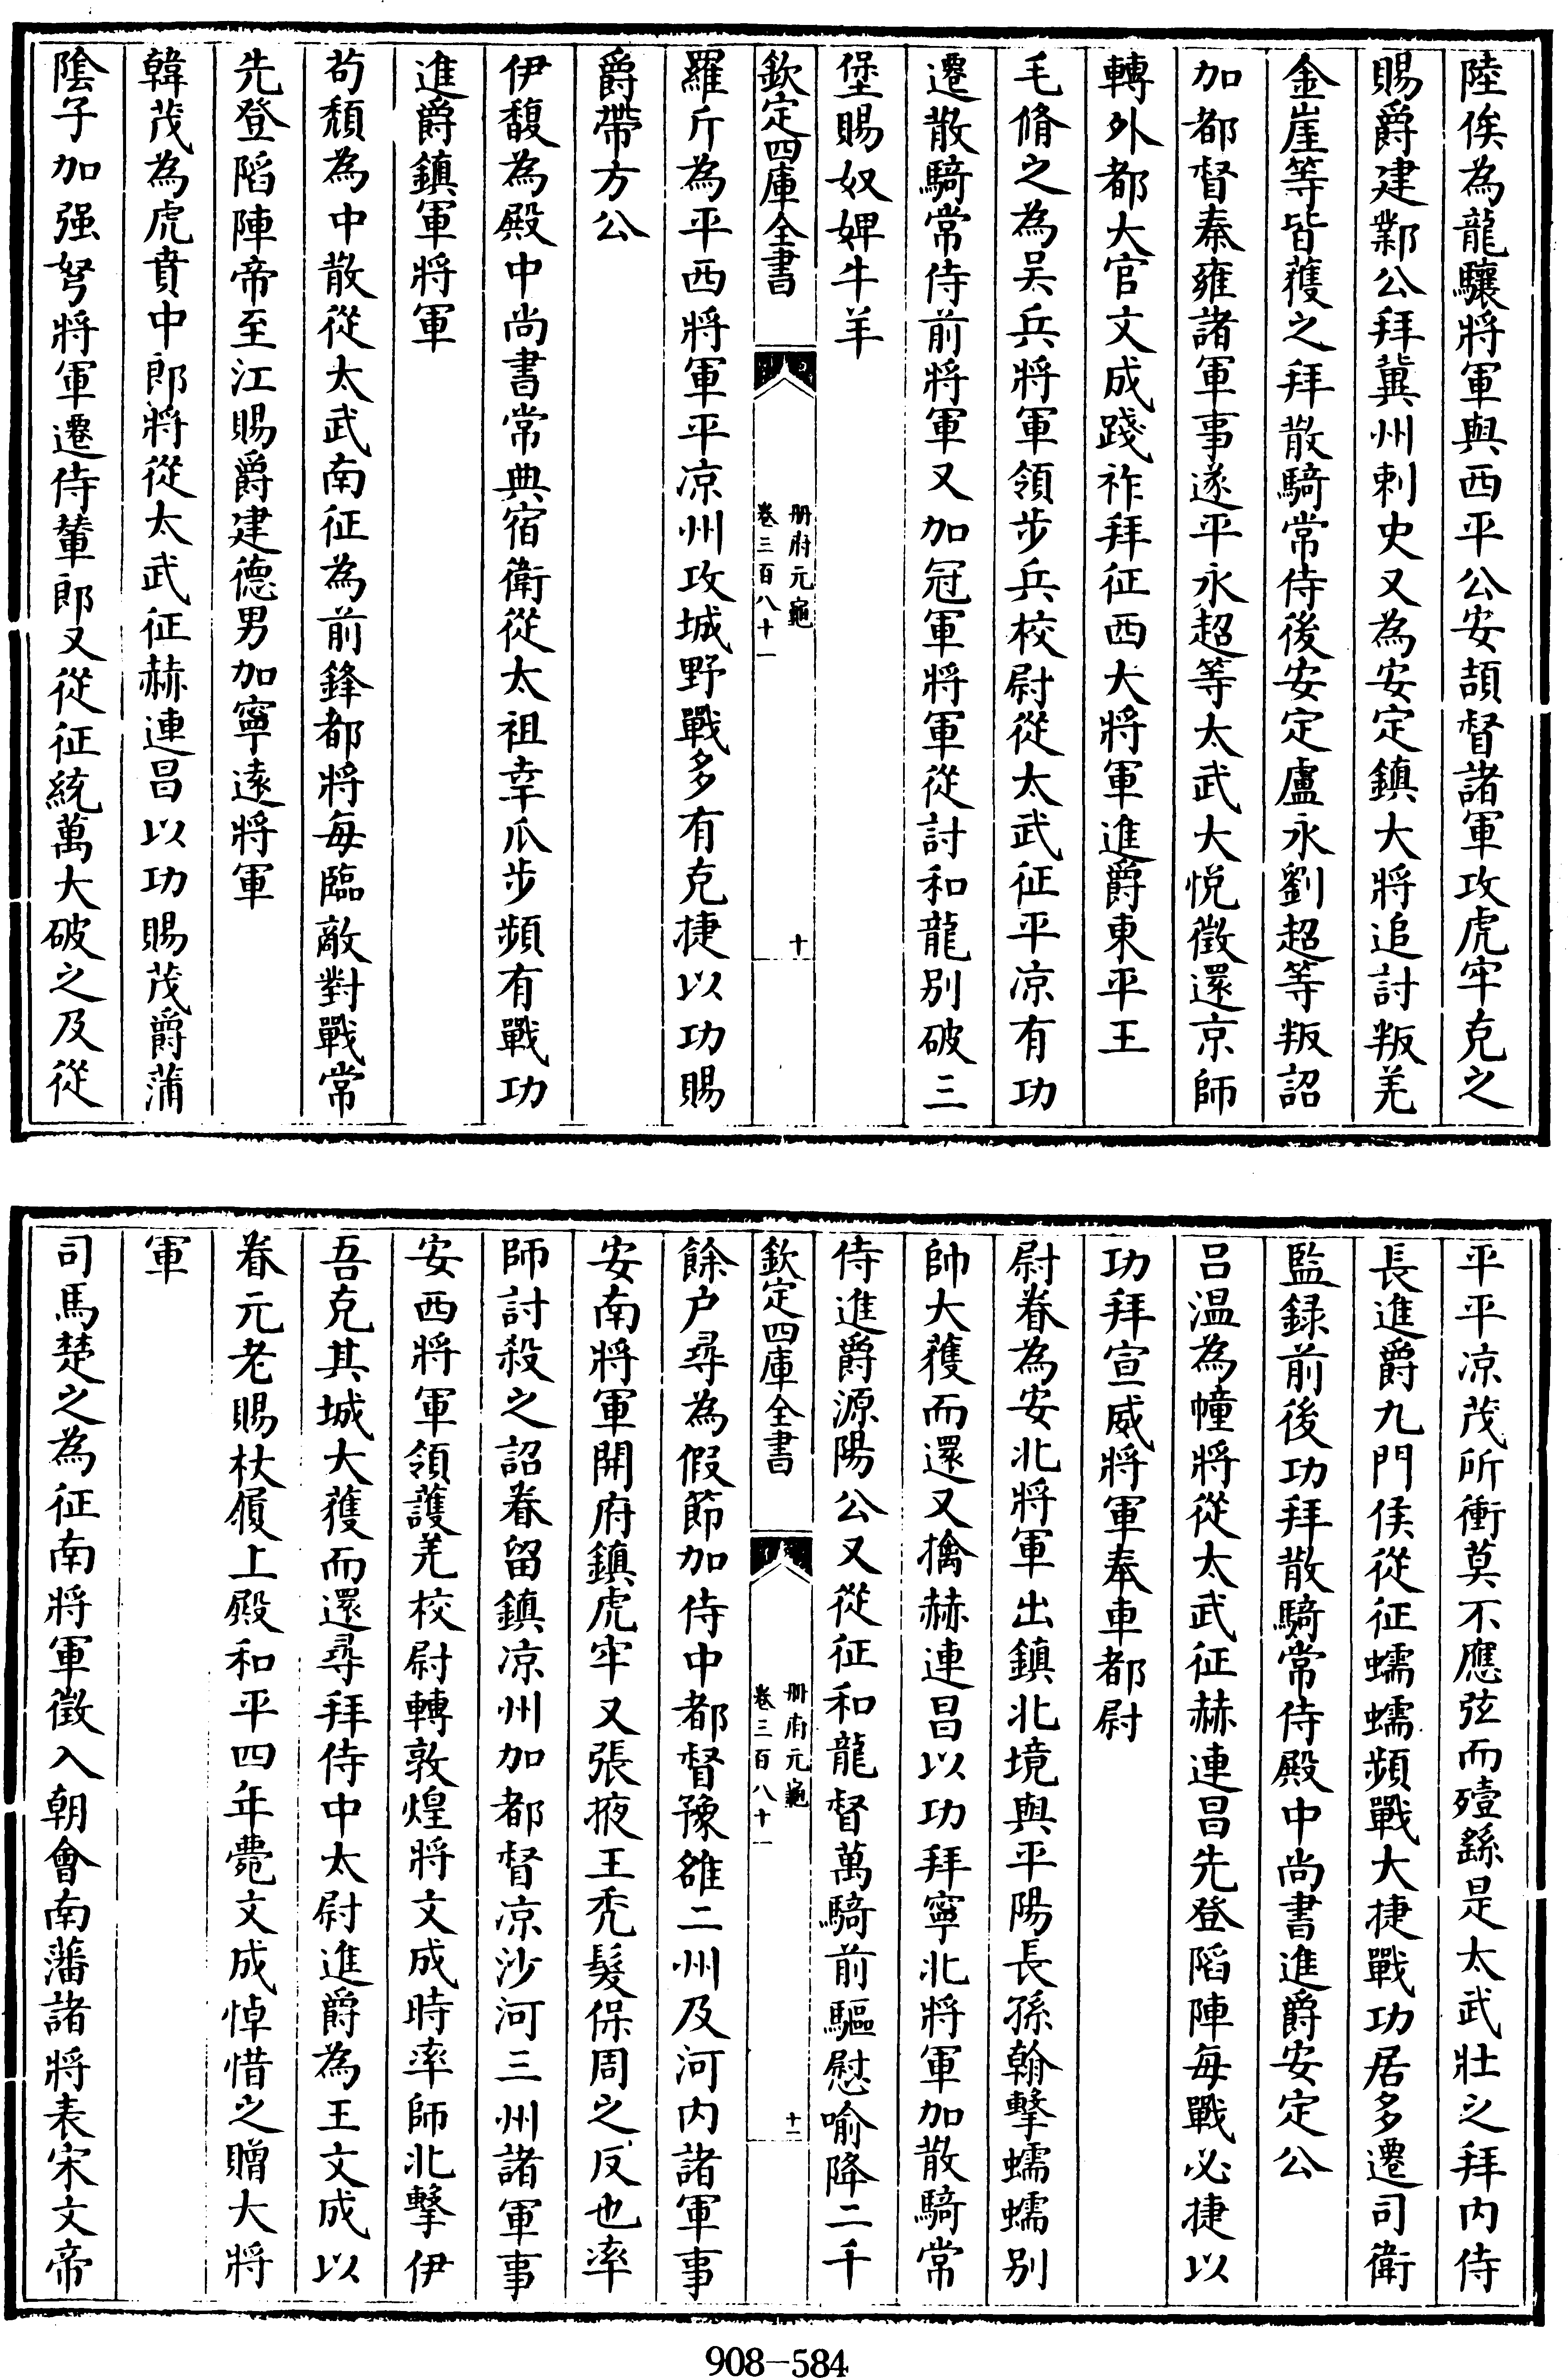 陸俟為龍驤將軍與西平公安頡督諸軍攻虎牢克之
賜爵建鄴公拜冀州刺史又為安定鎮大將追討叛羌
金崖等皆獲之拜散騎常侍後安定盧永劉超等叛詔
加都督秦雍諸軍事遂平永超等太武大悅徵還京師
轉外都大官文成踐祚拜征西大將軍進爵東平王
毛脩之為吴兵將軍領步兵校尉從太武征平凉有功
遷散騎常侍前將軍又加冠軍將軍從討和龍别破三
堡賜奴婢牛羊
欽定四庫全書
册府元龜
卷三百八十一
十
羅斤為平西將軍平凉州攻城野戰多有克捷以功賜
爵帶方公
伊馥為殿中尚書常典宿衛從太祖幸瓜步頻有戰功
進爵鎮軍將軍
苟頹為中散從太武南征為前鋒都將每臨敵對戰常
先登陷陣帝至江賜爵建德男加寧遠將軍
韓茂為虎賁中郎將從太武征赫連昌以功賜茂爵蒲
陰子加强弩將軍遷侍輦郎又從征統萬大破之及從
平平凉茂所衝莫不應弦而殪繇是太武壯之拜内侍
長進爵九門侯從征蠕蠕頻戰大捷戰功居多遷司衛
監録前後功拜散騎常侍殿中尚書進爵安定公
吕温為幢將從太武征赫連昌先登陷陣每戰必捷以
功拜宣威將軍奉車都尉
尉眷為安北將軍出鎮北境與平陽長孫翰擊蠕蠕别
帥大獲而還又擒赫連昌以功拜寧北將軍加散騎常
侍進爵源陽公又從征和龍督萬騎前驅慰喻降二千
欽定四庫全書
册府元龜
卷三百八十一
十一
餘户尋為假節加侍中都督豫雒二州及河内諸軍事
安南將軍開府鎮虎牢又張掖王禿髮保周之反也率
師討殺之詔眷留鎮凉州加都督凉沙河三州諸軍事
安西將軍領護羌校尉轉敦煌將文成時率師北擊伊
吾克其城大獲而還尋拜侍中太尉進爵為王文成以
眷元老賜杖履上殿和平四年薨文成悼惜之贈大將
軍
司馬楚之為征南將軍徵入朝會南藩諸將表宋文帝
908-584